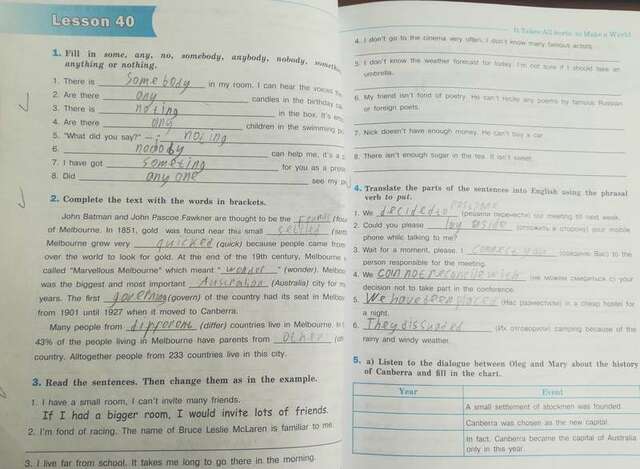 Lesson 40
1. Fill in some, any, no, somebody, anybody, nobody,
anything or nothing.
1. There is somebody in my room. I can hear the voices
2. Are there any candles in the birthday
3. There is noting in the box. It's
4. Are there any children in the swimming
5. "What did you say?" – noting
6. nobody can help me, it's a
7. I have got someting for you as a
8. Did any one see my
2. Complete the text with the words in brackets.
John Batman and John Pascoe Fawkner are thought to be the
of Melbourne. In 1851, gold was found near this small
Melbourne grew very quicked (quick) because people came from
over the world to look for gold. At the end of the 19th century, Melbourne
called "Marvellous Melbourne" which meant " wonder " (wonder). Melbo
was the biggest and most important Australian (Australia) city for m
years. The first governing (govern) of the country had its seat in Melbo
from 1901 until 1927 when it moved to Canberra.
Many people from different (differ) countries live in Melbourne. In
43% of the people living in Melbourne have parents from other
country. Alltogether people from 233 countries live in this city.
3. Read the sentences. Then change them as in the example.
1. I have a small room, I can't invite many friends.
If I had a bigger room, I would invite lots of friends.
2. I'm fond of racing. The name of Bruce Leslie McLaren is familiar to me.
3. I live far from school. It takes me long to go there in the morning.
It Takes All Sorts to Make a World
4. I don't go to the cinema very often. I don't know many famous actors.
5. I don't know the weather forecast for today. I'm not sure if I should take an
umbrella.
6. My friend isn't fond of poetry. He can't recite any poems by famous Russian
or foreign poets.
7. Nick doesn't have enough money. He can't buy a car.
8. There isn't enough sugar in the tea. It isn't sweet.
4. Translate the parts of the sentences into English using the phrasal
verb to put.
1. We decided to postpone (решили перенести) our meeting till next week.
2. Could you please lay aside (отложить в сторону) your mobile
phone while talking to me?
3. Wait for a moment, please. I connect you (соединю Вас) to the
person responsible for the meeting.
4. We can not reconcile with (не можем смириться с) your
decision not to take part in the conference.
5. We have been placed (Нас разместили) in a cheap hostel for
a night.
6. They dissuaded (Их отговорили) camping because of the
rainy and windy weather.
5. a) Listen to the dialogue between Oleg and Mary about the history
of Canberra and fill in the chart.
Year Event
A small settlement of stockmen was founded.
Canberra was chosen as the new capital.
In fact, Canberra became the capital of Australia
only in this year.